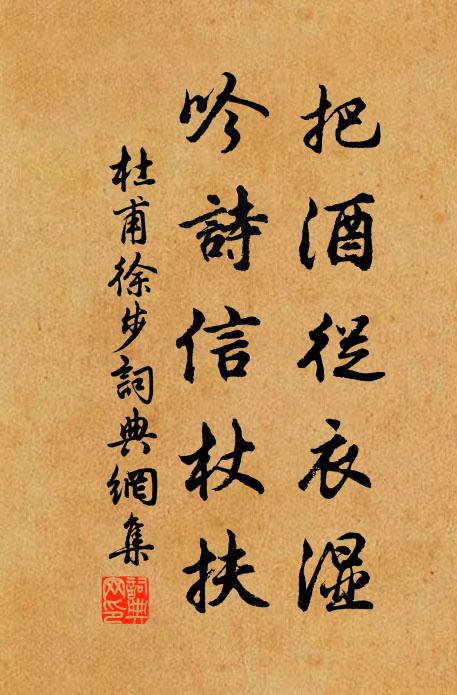 把酒從衣濕
吟詩信杖扶
杜甫徐步詞典網集
詞典網印